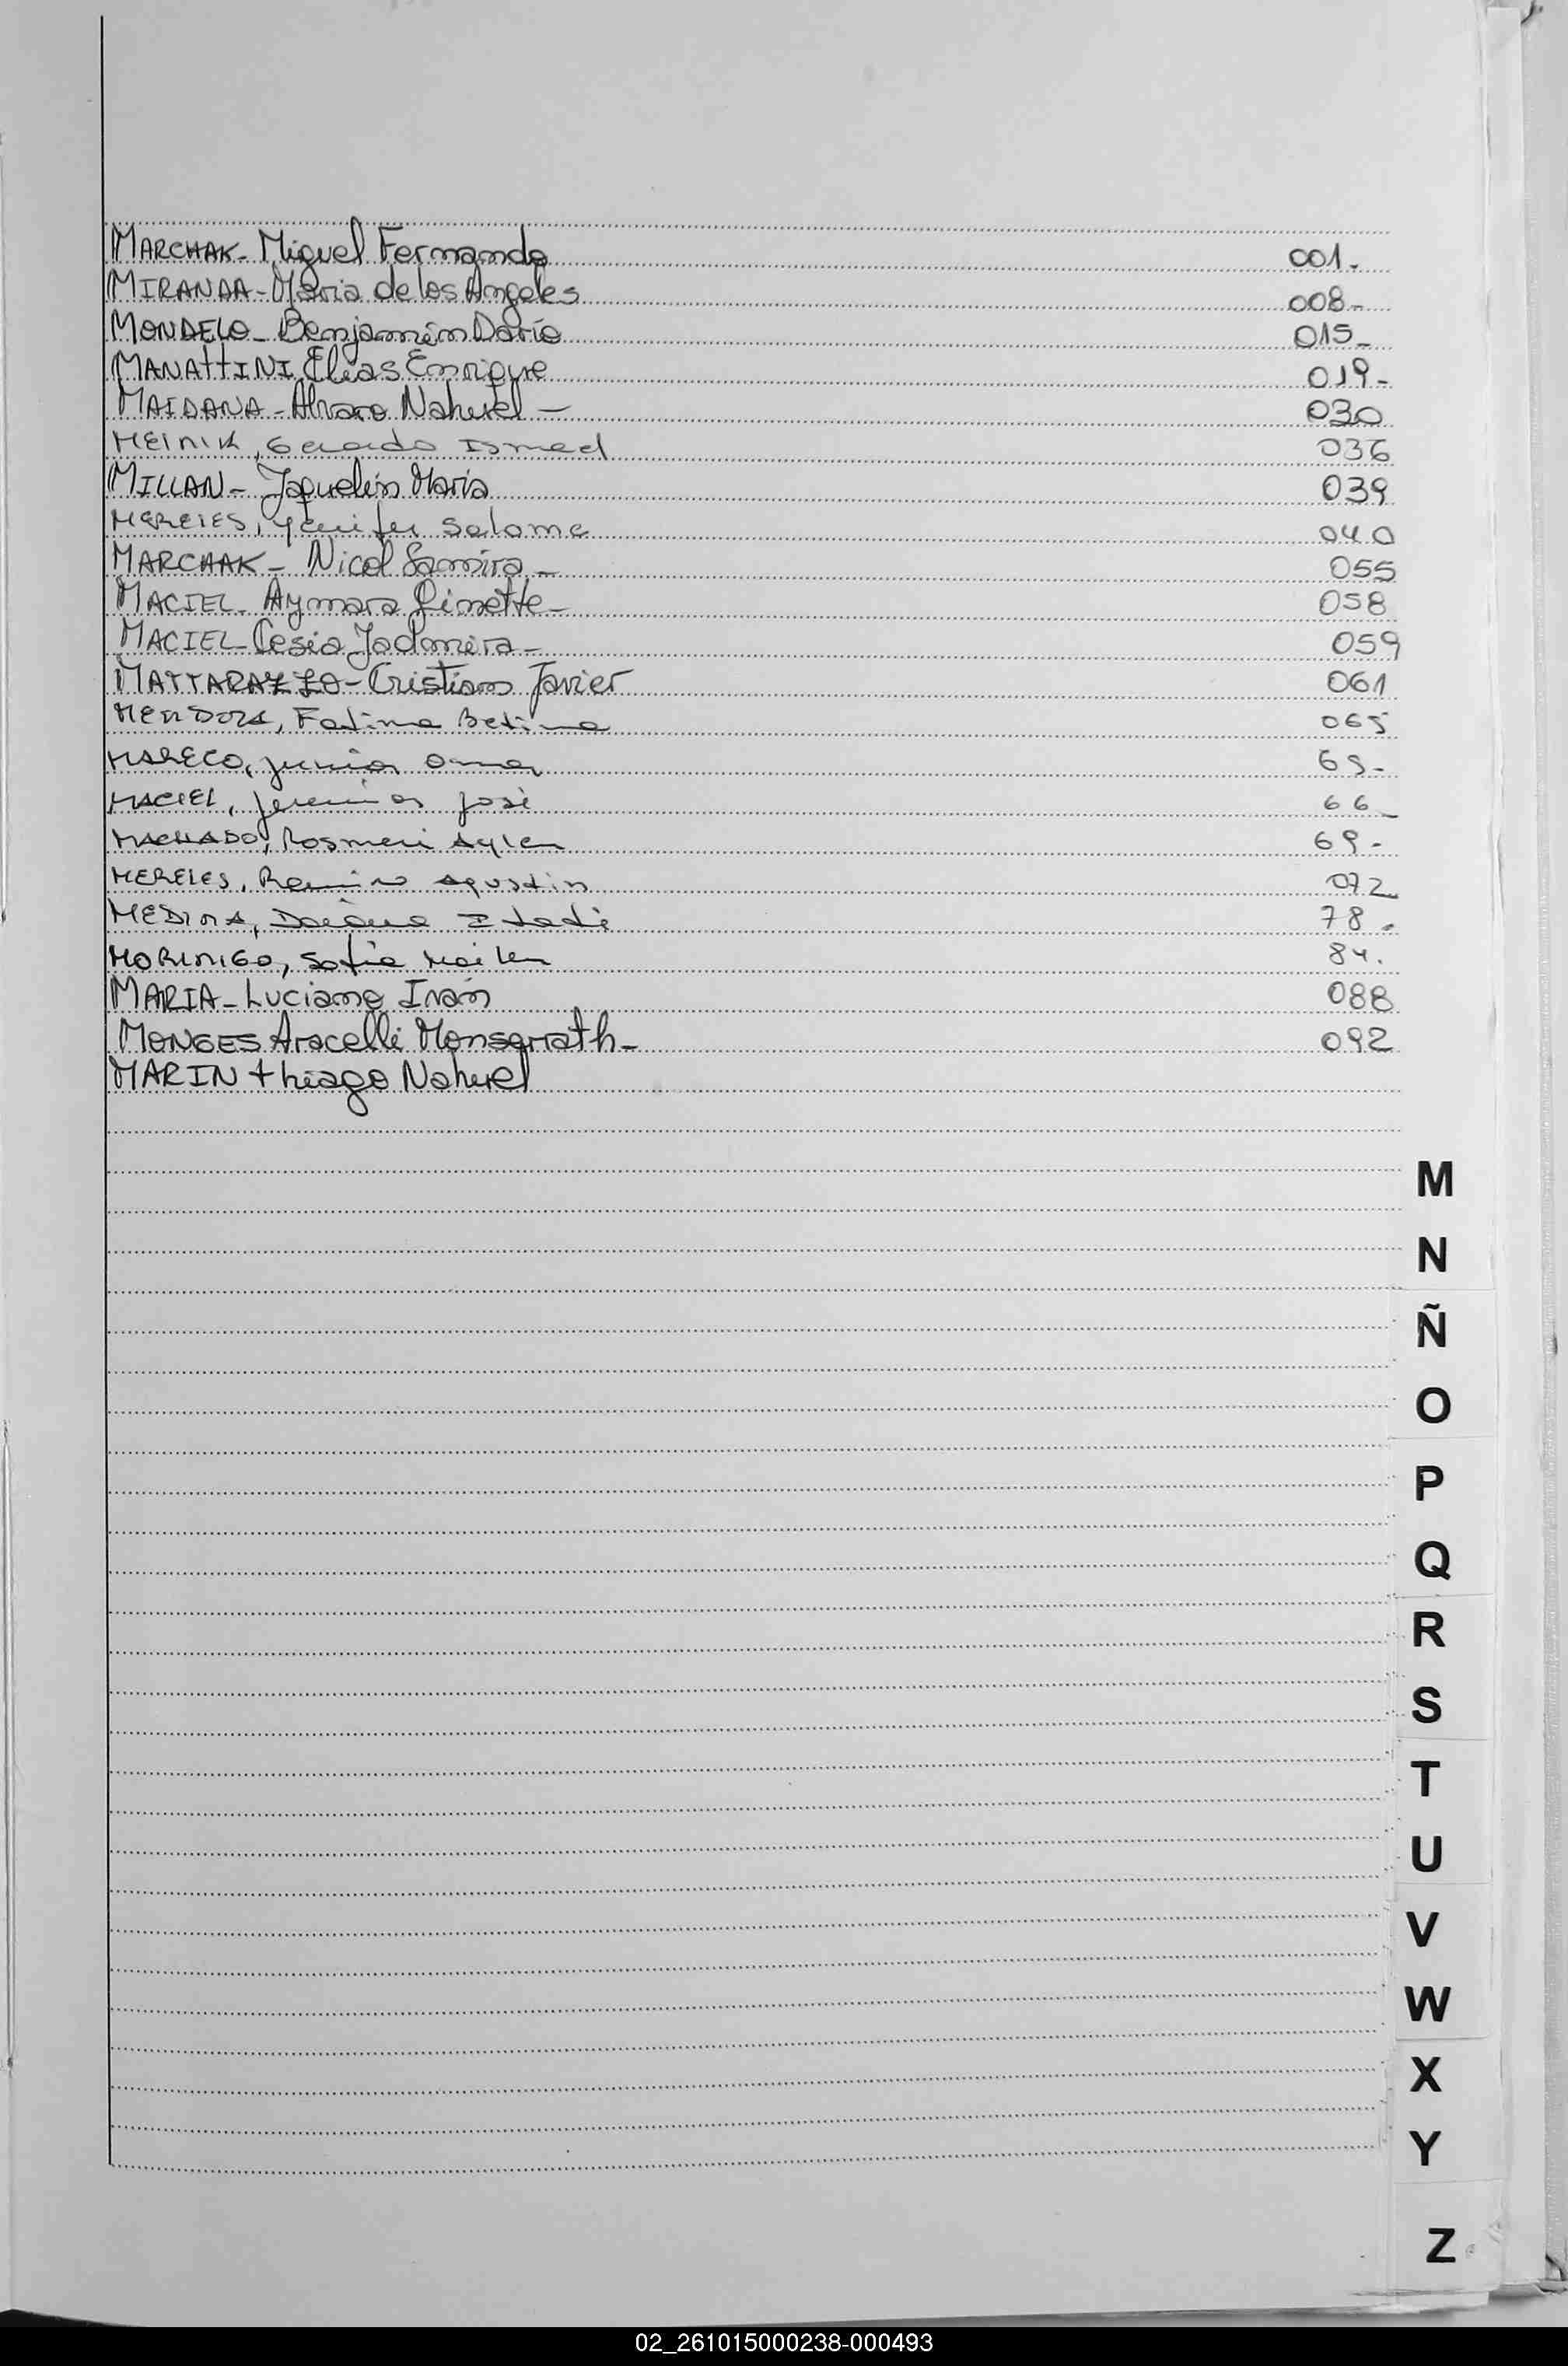 MARCHAK- Miguel Fernando 001-
MIRANDA- María de los Angeles 008-
MONDELO- Benjamín Darío 015-
MANATTINI Elías Enrique 019-
MAIDANA- Alvaro Nahuel - 030
MEINIK, Gerardo Ismael 036
MILLAN- Jaquelin María 039
MERELES, Yenifer Salome 040
MARCHAK- Nicol Samira - 055
MACIEL- Aymara Ginette- 058
MACIEL- Cesia Jadmira- 059
MATTARAZZO- Cristian Javier 061
MENDOZA, Fatima Betina 065
MARECO, Junior Omar 65-
MACIEL, Jeremias José 66-
MACHADO, Rosmeri Aylen 69-
MERELES, Ramiro Agustin 072
MEDINA, Daiana Itatí 78.
MORINIGO, Sofia Mailen 84.
MARIA- Luciano Iván 088
MONGES Aracelli Monserrath- 092
MARIN thiago Nahuel
M
N
Ñ
O
P
Q
R
S
T
U
V
W
X
Y
Z
02_261015000238-000493